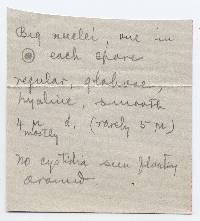 Big nuclei, one in
each spore
regular, globose,
hyaline, smooth
4 µ d. (rarely 5 µ)
mostly
no cystidia seen
around